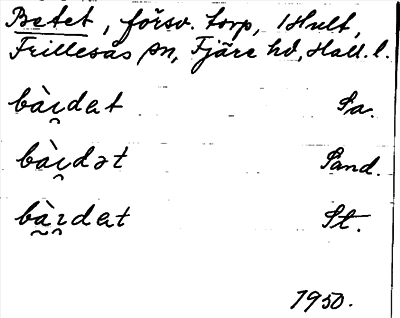 Betet, försv. torp, Hult,
Frillesås sn, Fjäre hd, Hall. l.
bàı̯dat Sa.
bàı̯dət Sand.
bà̰ı̯dat St.
1950.